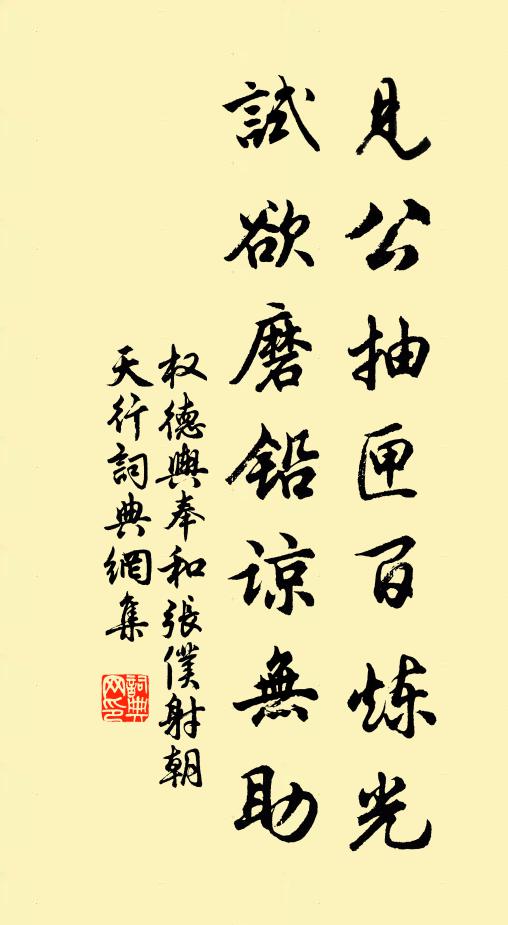 見公抽匣百炼光
試欲磨铅谅無助
权德輿奉和張僕射朝
天行詞典網集
詞典
网印